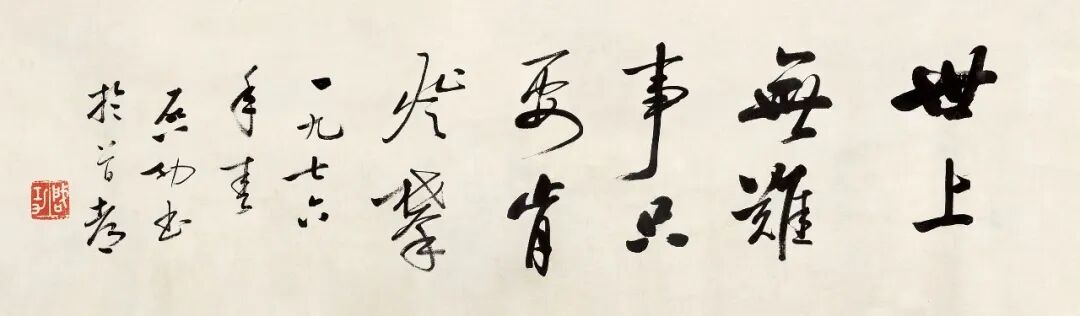 世上
無難
事只
要肯
登攀
一九七六
年春
啓功書
於首都
啓功